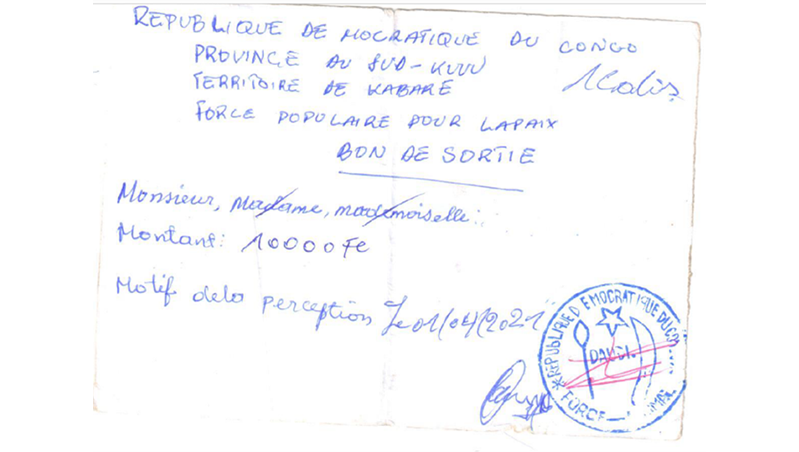 REPUBLIQUE DEMOCRATIQUE DU CONGO
PROVINCE DU SUD-KIVU
TERRITOIRE DE KABARE
FORCE POPULAIRE POUR LAPAIX
BON DE SORTIE
Monsieur, Madame, mademoiselle:
Montant: 10000Fc
Motif dela perception le 01/04/2021
REPUBLIQUE DEMOCRATIQUE DU
FORCE